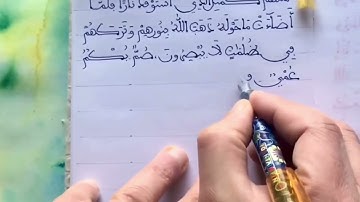 كمثل الذي استوقد نارا فلما
أضاءت ماحوله ذهب الله بنورهم وتركهم
في ظلمات لا يبصرون صم بكم
عمي و